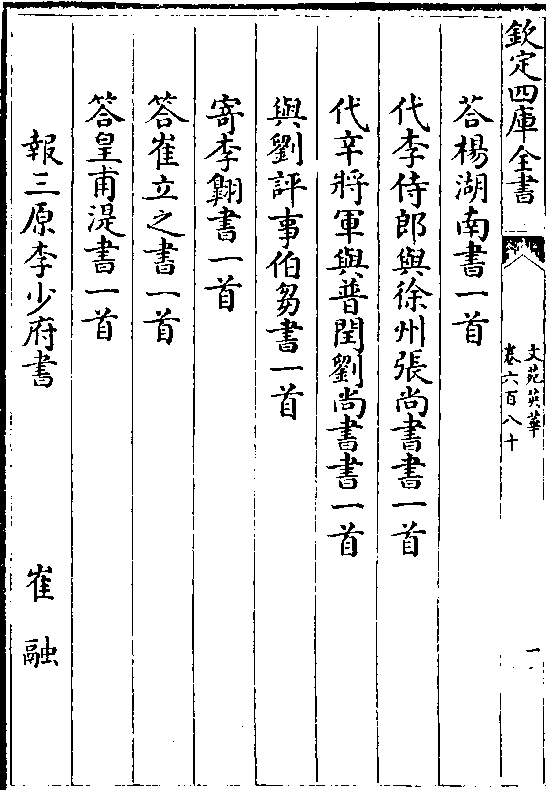 欽定四庫全書
文苑英華
卷六百八十
一
荅楊湖南書一首
代李侍郎與徐州張尚書書一首
代辛將軍與普閏劉尚書書一首
與劉評事伯芻書一首
寄李翺書一首
答崔立之書一首
答皇甫湜書一首
報三原李少府書 崔融